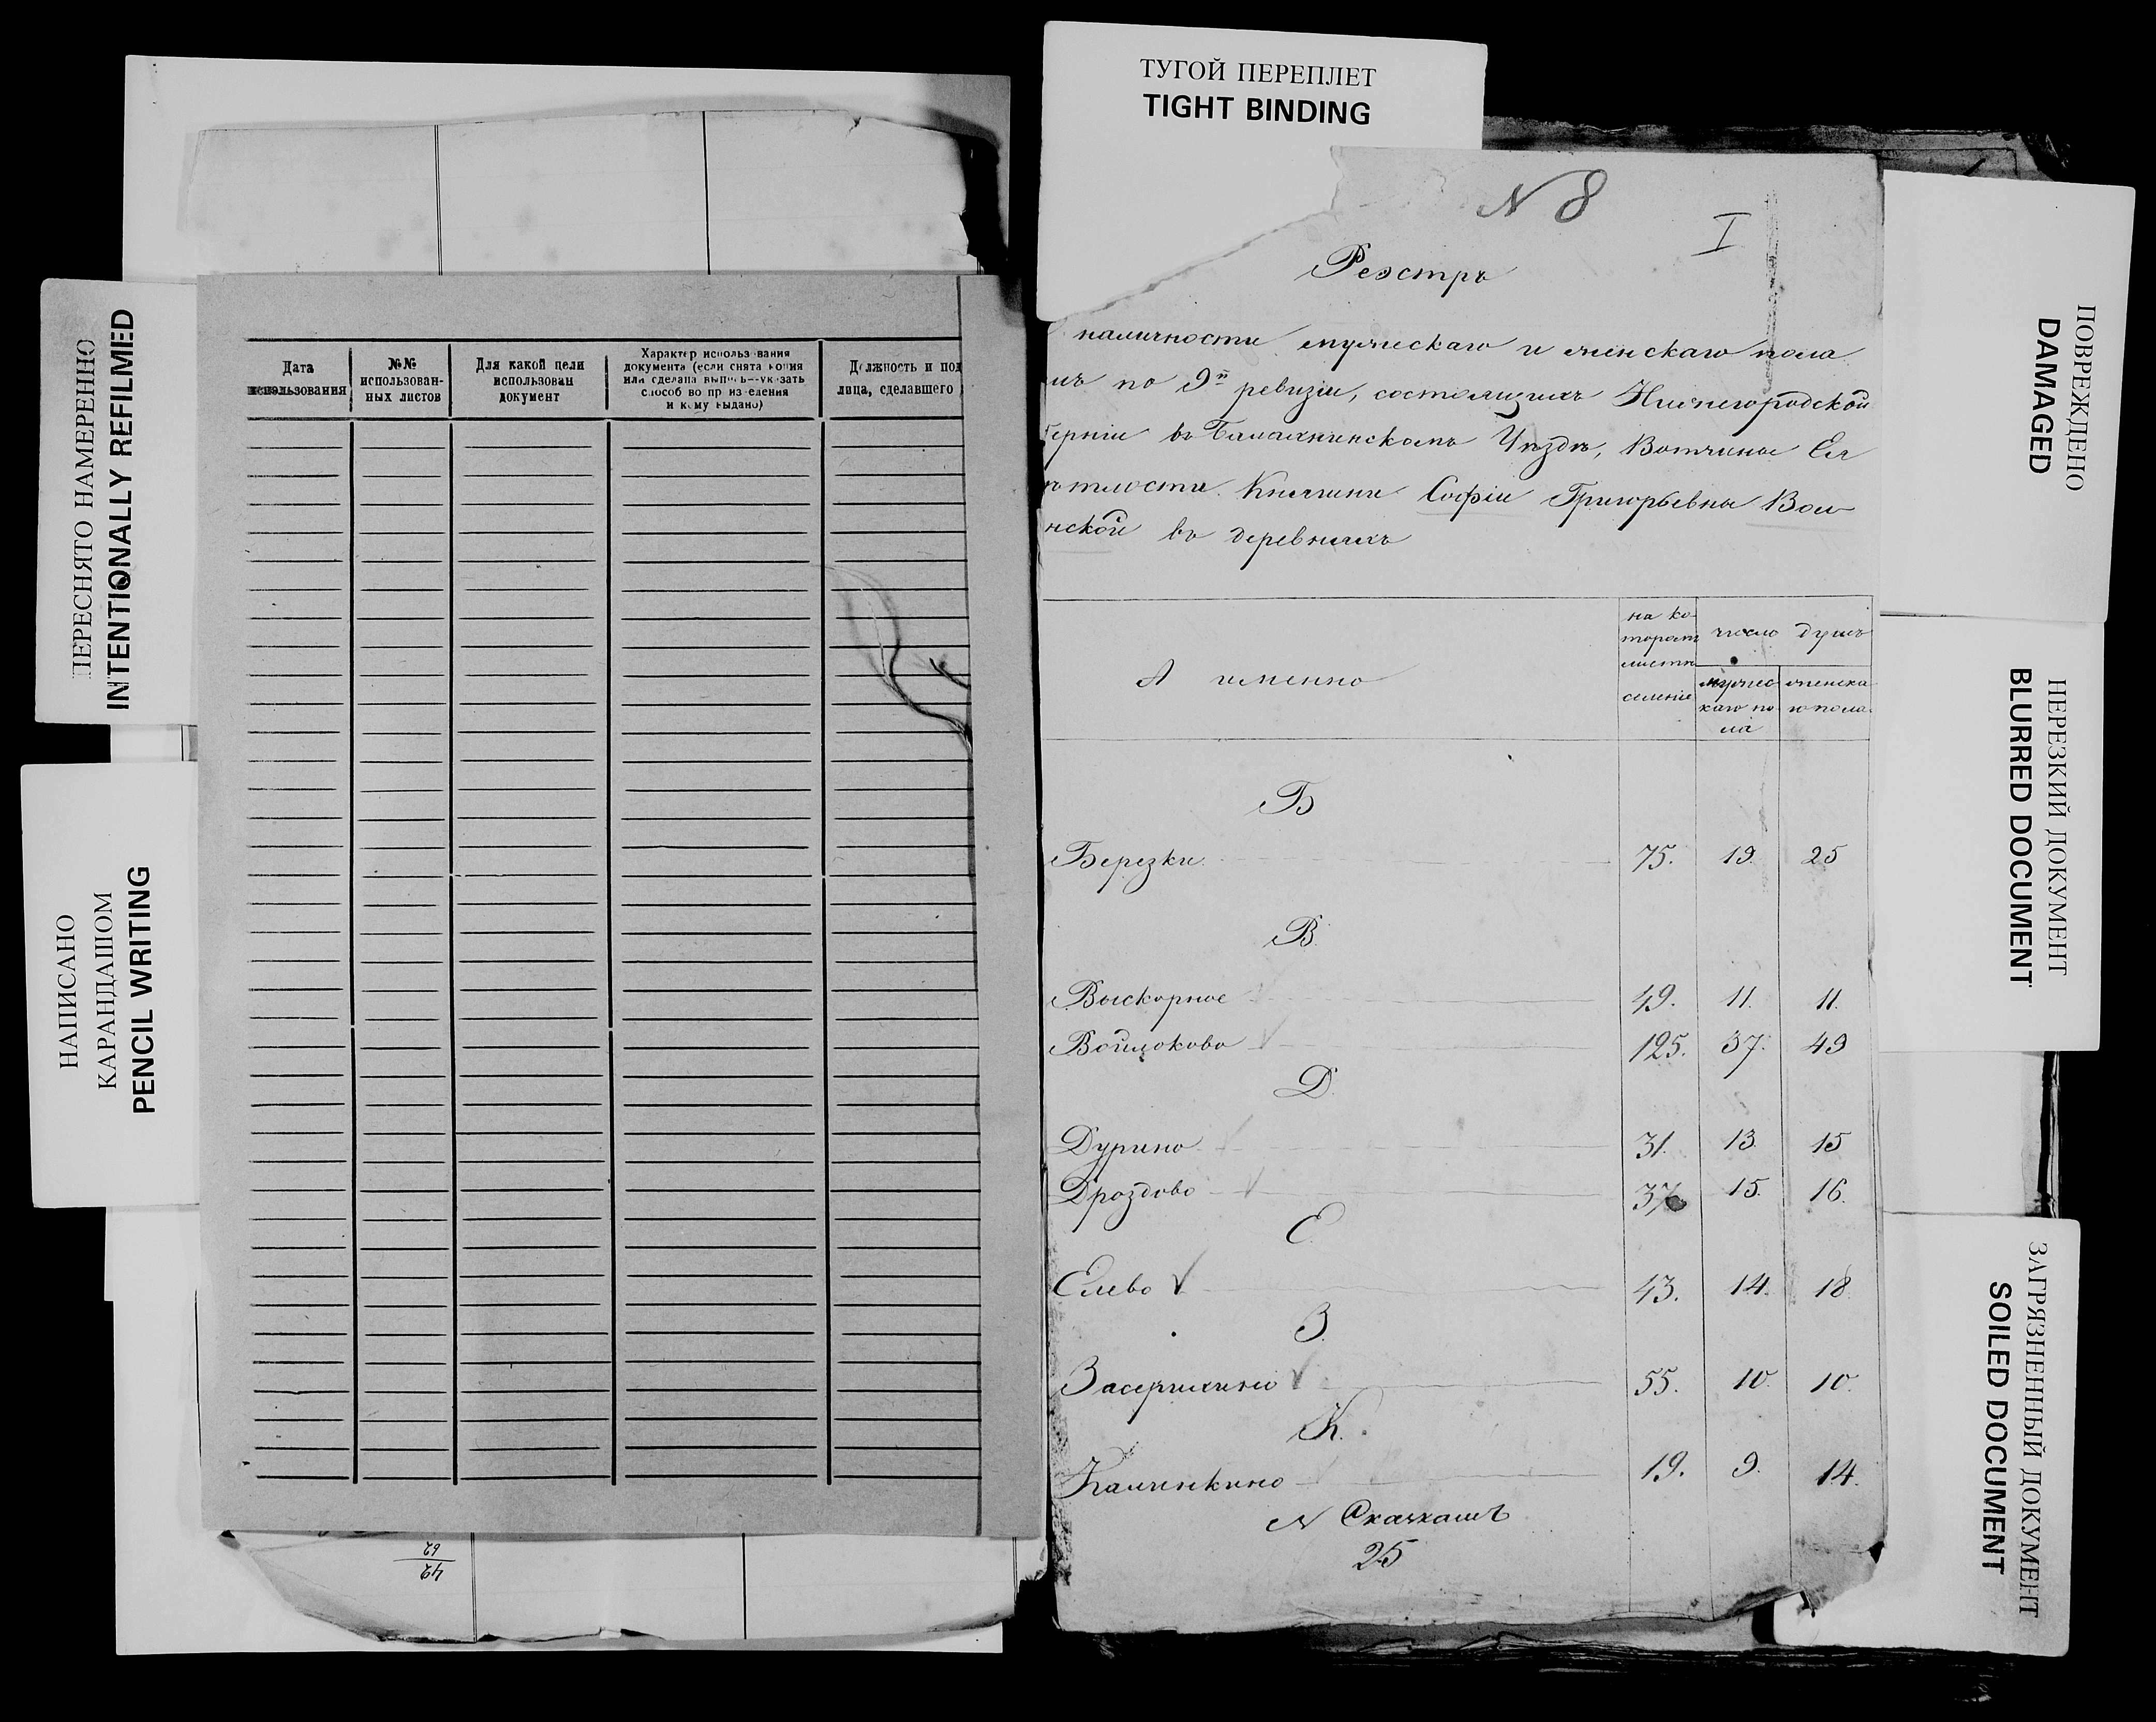 ТУГОЙ ПЕРЕПЛЕТ
TIGHT BINDING
ПЕРЕСНЯТО НАМЕРЕННО
INTENTIONALLY REFILMED
НАПИСАНО
КАРАНДАШОМ
PENCIL WRITING
Дата
использования
№№
использован-
ных листов
Для какой цели
использован
документ
Характер использ вания
документа (если снята копия
или сделана выпись--указать
способ во пр из едения
и кому выдано)
Должность и под
лица, сделавшего
62
42
N 8
I
Реэстръ
наличности мужескаго и женскаго пола
по 9й ревизіи, состоящихъ Нижегородской
берніи въ Балахнинскомъ Уѣздѣ, Вотчины Ея
тлости Княгини Софіи Григорьевны Вол
нской въ деревняхъ
А именно
на ко
торомъ
листѣ
селеніе
число душъ
мужес
каго по
ла
женска
го пола
Б
Березки 75. 19. 25
В.
Выскорное 49. 11. 11.
Войлоково 125. 37. 49
Д.
Дурино 31. 13 15
Дроздово 37 15. 16.
Е.
Елево 43. 14. 18
З.
Засерихино 55. 10. 10.
К.
Калинкино 19. 9. 14.
N
25
ПОВРЕЖДЕНО
DAMAGED
НЕРЕЗКИЙ ДОКУМЕНТ
BLURRED DOCUMENT
ЗАГРЯЗНЕННЫЙ ДОКУМЕНТ
SOILED DOCUMENT